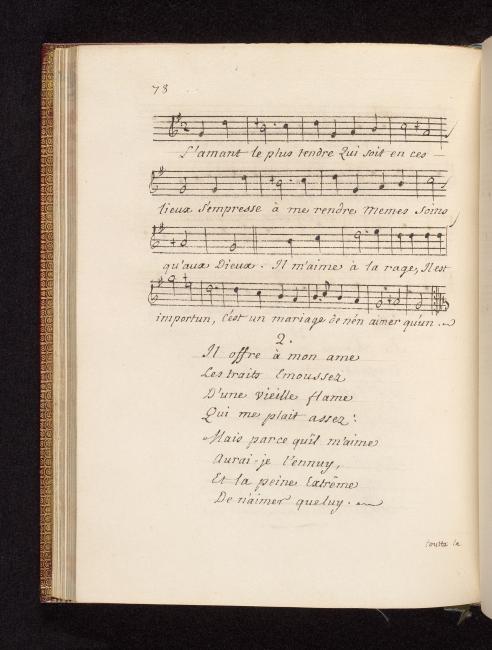 78
L'amant le plus tendre Qui soit en ces
lieux s'empresse à me rendre Memes Soins
qu'aux Dieux. Il m'aime à la rage, Il est
importun, C'est un mariage de n'én aimer qu'un.
2.
Il offre à mon ame
Les traits Emoussez
D'une vieille flame
Qui me plait assez:
Mais parce qu'il m'aime
Aurai-je l'ennuy,
Et la peine Extrême
De n'aimer que luy.